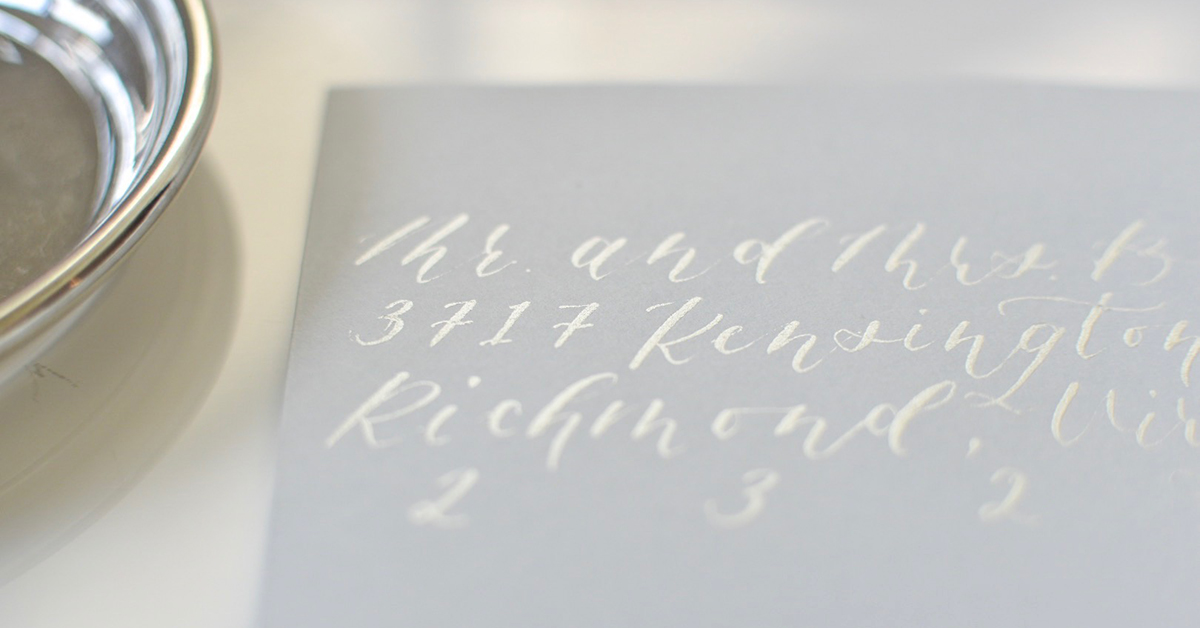 Mr. and Mrs. B
3717 Kensington
Richmond, Vir
2 3 2